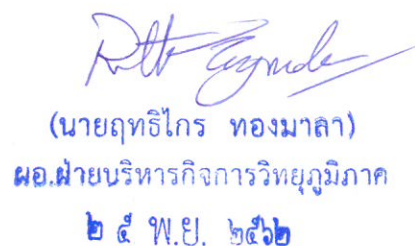 (นายฤทธิไกร ทองมาลา)
ผอ.ฝ่ายบริหารกิจการวิทยุภูมิภาค
๒ ๕ พ.ย. ๒๕๖๒